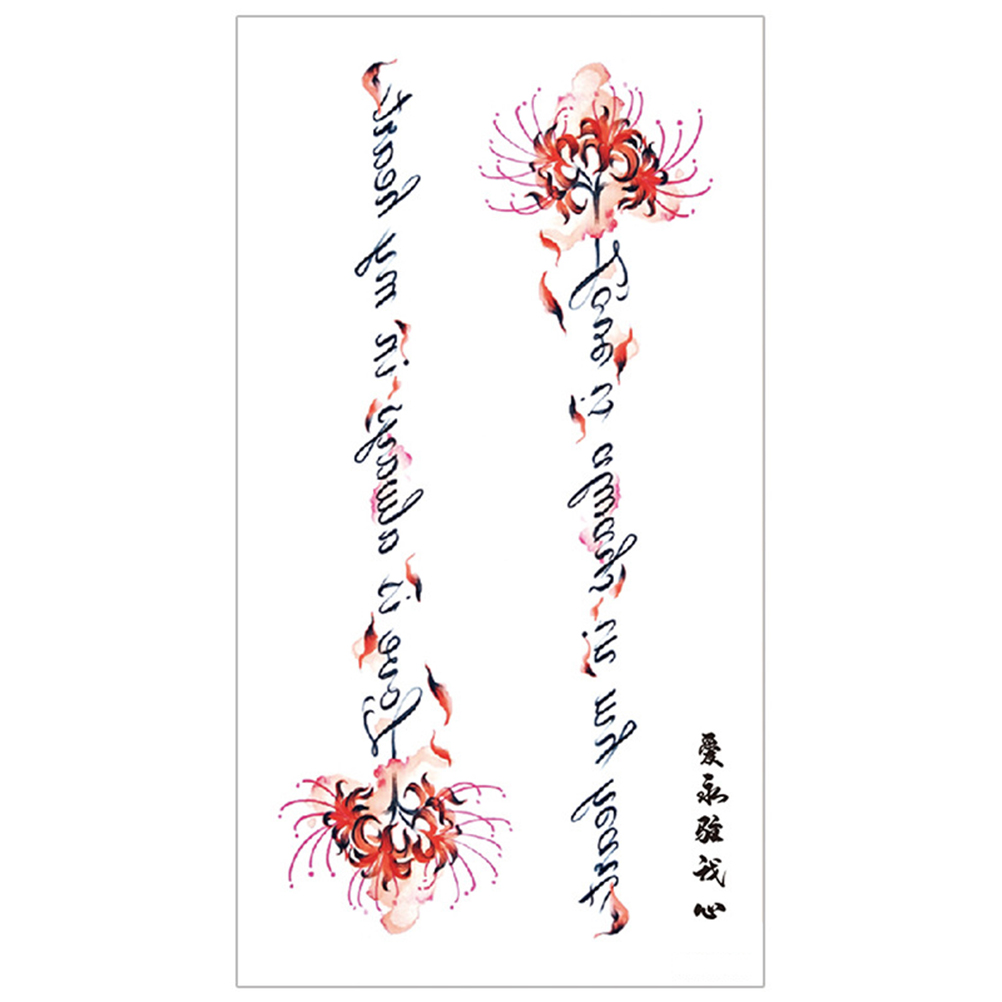 Love is always in my heart
Love is always in my heart
愛永駐我心